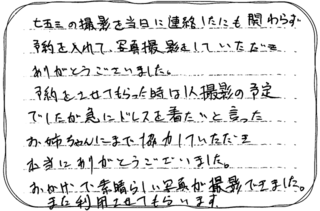 七五三の撮影を当日に連絡したにも関わらず
予約を入れて、写真撮影をしていただき
ありがとうございました。
予約をさせてもらった時は1人撮影の予定
でしたが急にドレスを着たいと言った
お姉ちゃんにまで協力していただき
本当にありがとうございました。
おかげで素晴らしい写真が撮影できました。
また利用させてもらいます